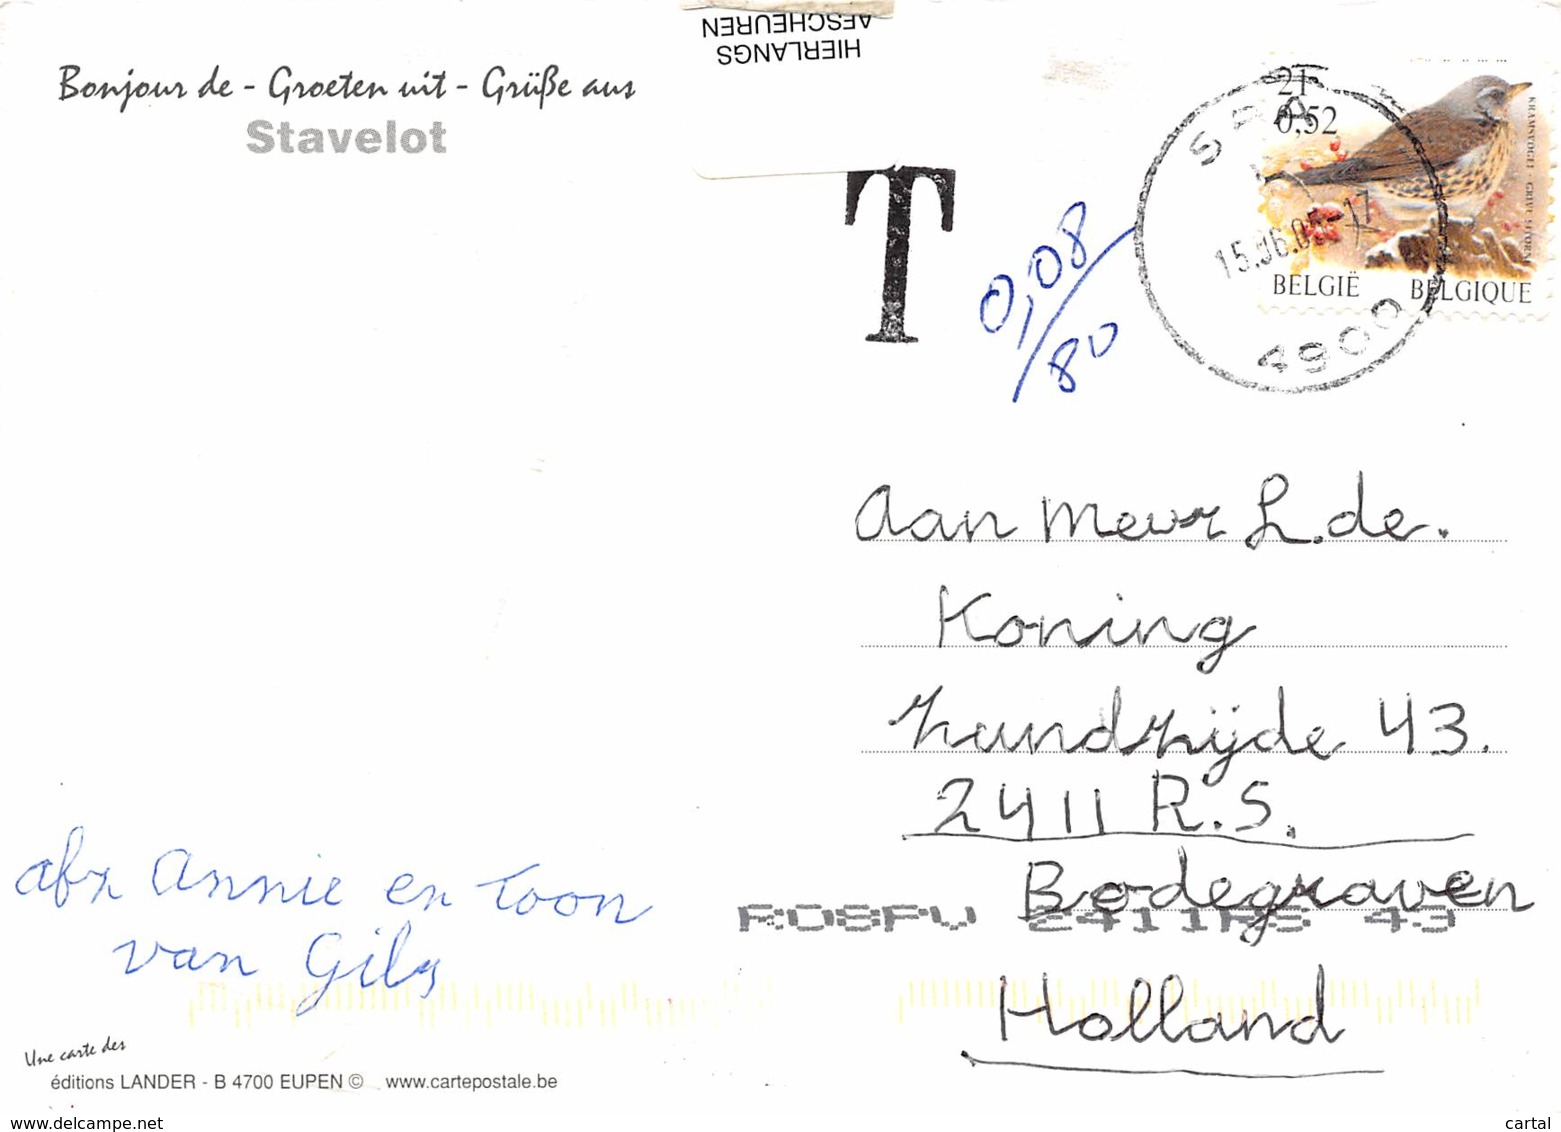 HIERLANGS
AFSCHEUREN
Bonjour de - Groeten uit - Grüße aus
Stavelot
T
0,08
80
21
0,52
KRAMSVOGEL - GRIVE LITORNE
BELGIË BELGIQUE
SPA
15.06.05-17
4900
Aan Meur L. de.
Koning
Zundzijde 43.
2411 R.S.
Bodegraven
ROSPV 2411RS 43
Holland
afz Annie en Toon
van Gils
Une carte des
éditions LANDER - B 4700 EUPEN © www.cartepostale.be
www.delcampe.net
cartal